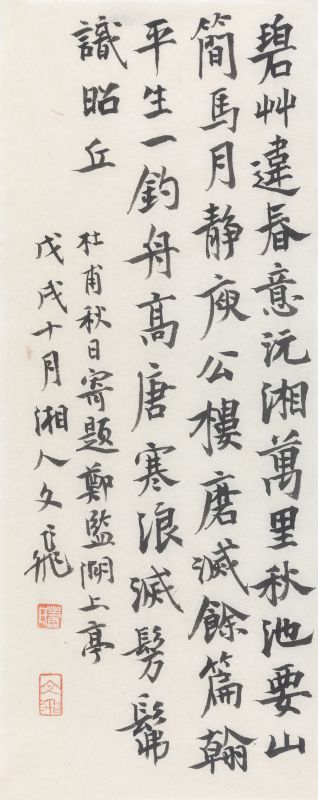 碧艸違春意沅湘萬里秋池要山
簡馬月静庾公樓磨滅餘篇翰
平生一釣舟高唐寒浪滅髣髴
識昭丘
杜甫秋日寄題鄭監湖上亭
戊戌十月湘人文飛